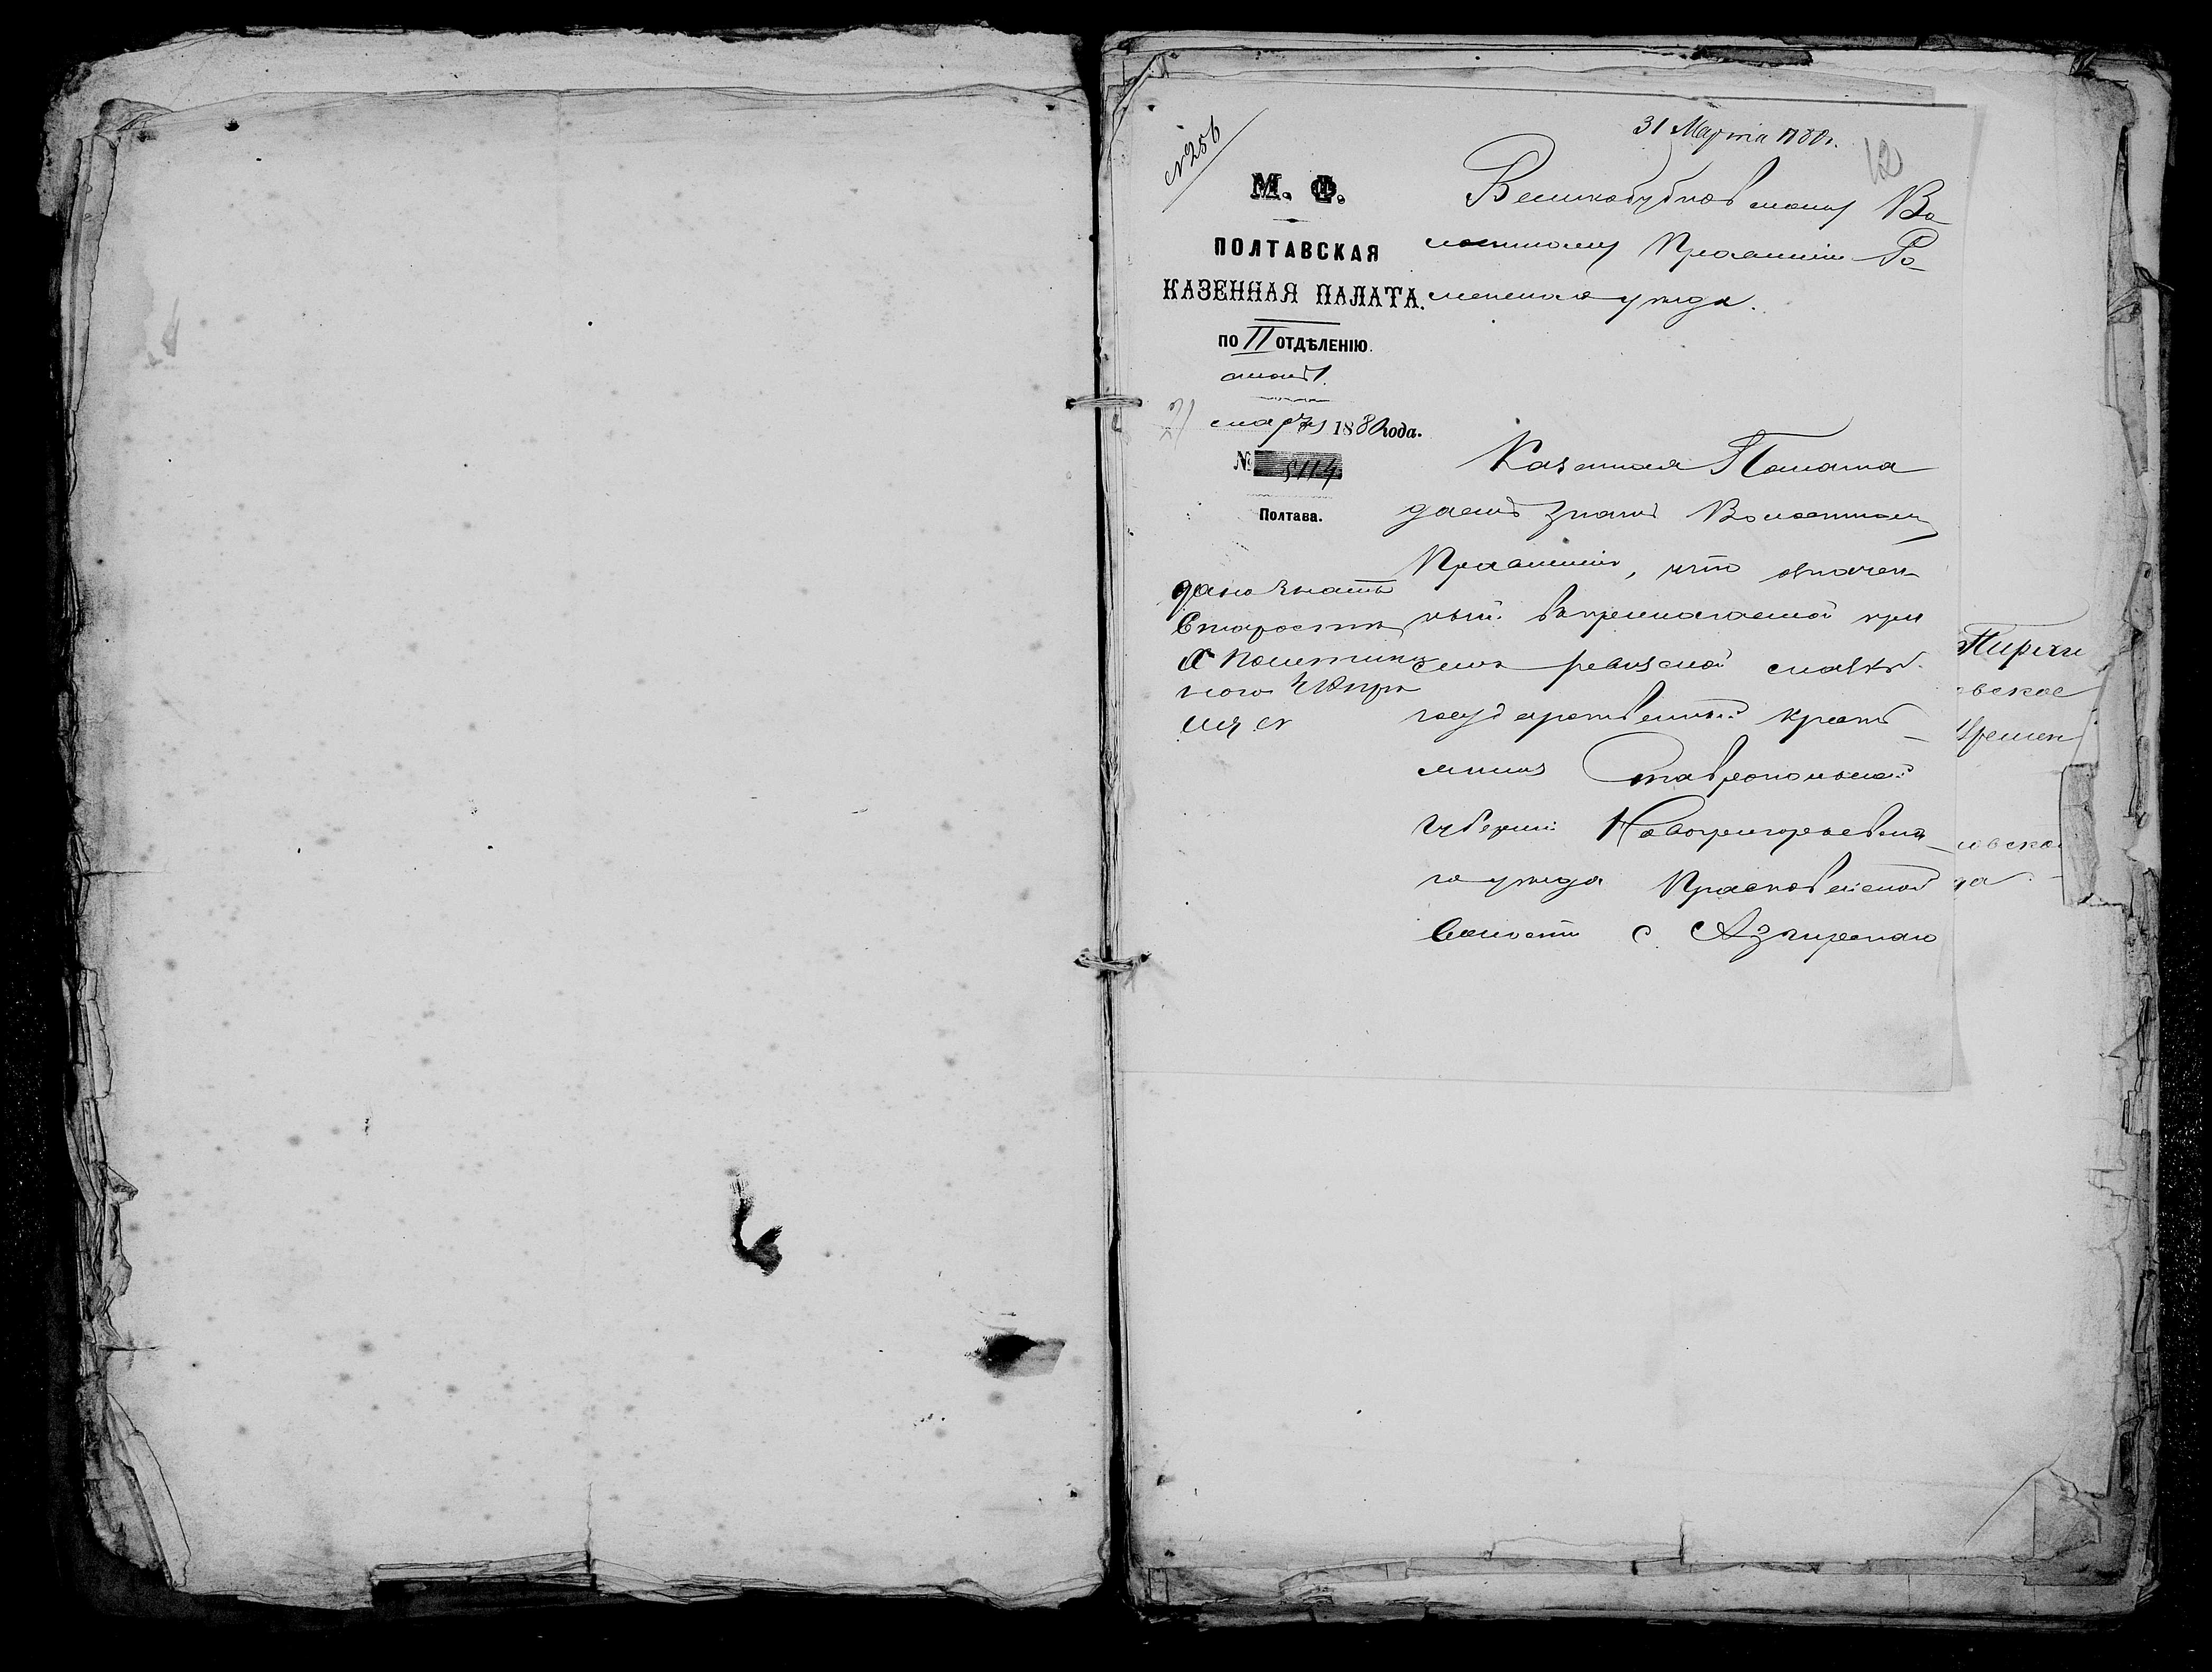 № 256
31 Марта 1880 г.
12
М. Ф.
ПОЛТАВСКАЯ
КАЗЕННАЯ ПАЛАТА.
по II ОТДѢЛЕНІЮ.
столъ 1.
21 марта 1880 года.
№ 5114
Полтава.
Великобубновскому Во-
лостному Правленію Ро-
менскаго уѣзда.
Казенная Палата
даетъ знать Волостному
Правленію, что означен
ный въ прилагаемой при
семъ ревизской сказкѣ
государственный кресть-
янинъ Ставропольской
губерніи Новогригорьевска-
го уѣзда Прасковейской
волости с. Азгирскаго
дано знать
Старостѣ